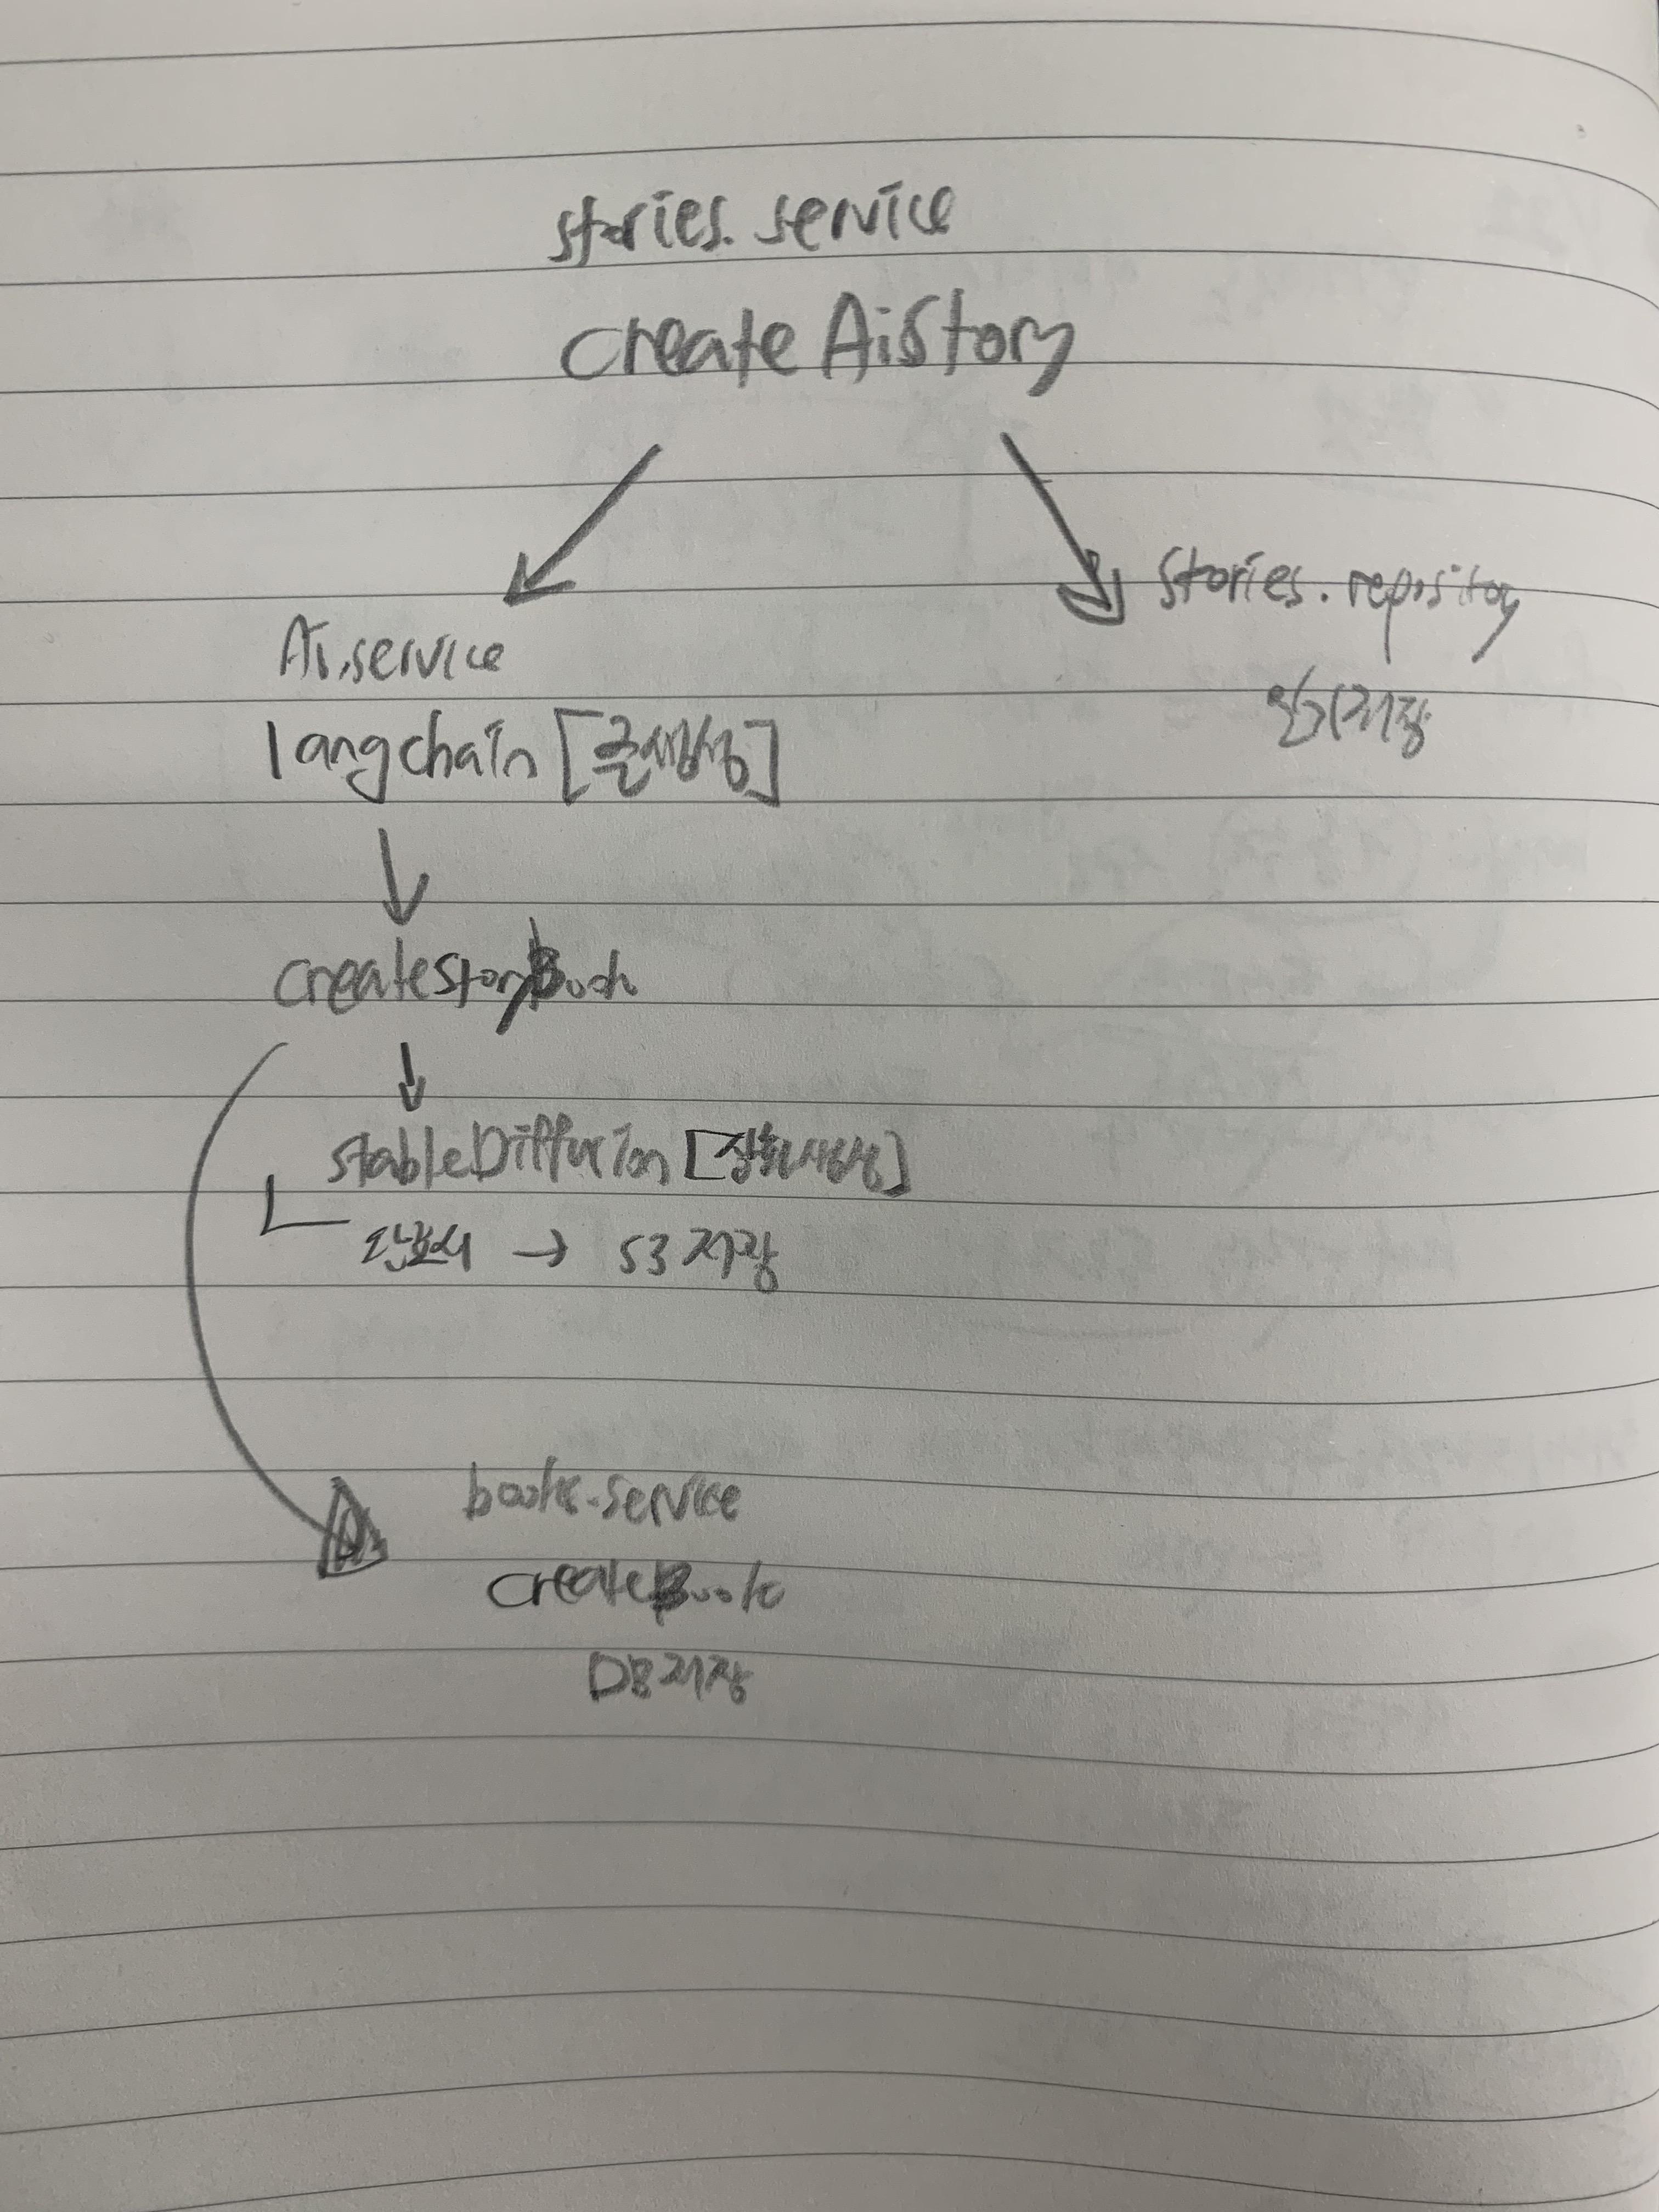 stories.service
createAiStory
Ai.service
stories.repository
일기저장
langchain [글생성]
createstoryBook
stableDiffusion [삽화생성]
완료시 → S3 저장
books.service
createBook
DB저장